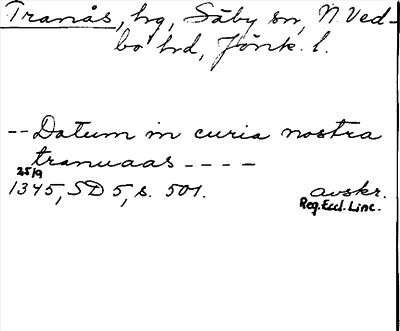 Tranås, hg, Säby sn, N. Ved-
bo hd, Jönk. l.
-- Datum in curia nostra
tranuaas ----
25/9
1345, SD 5, s. 501. avskr.
Reg. Eccl. Linc.